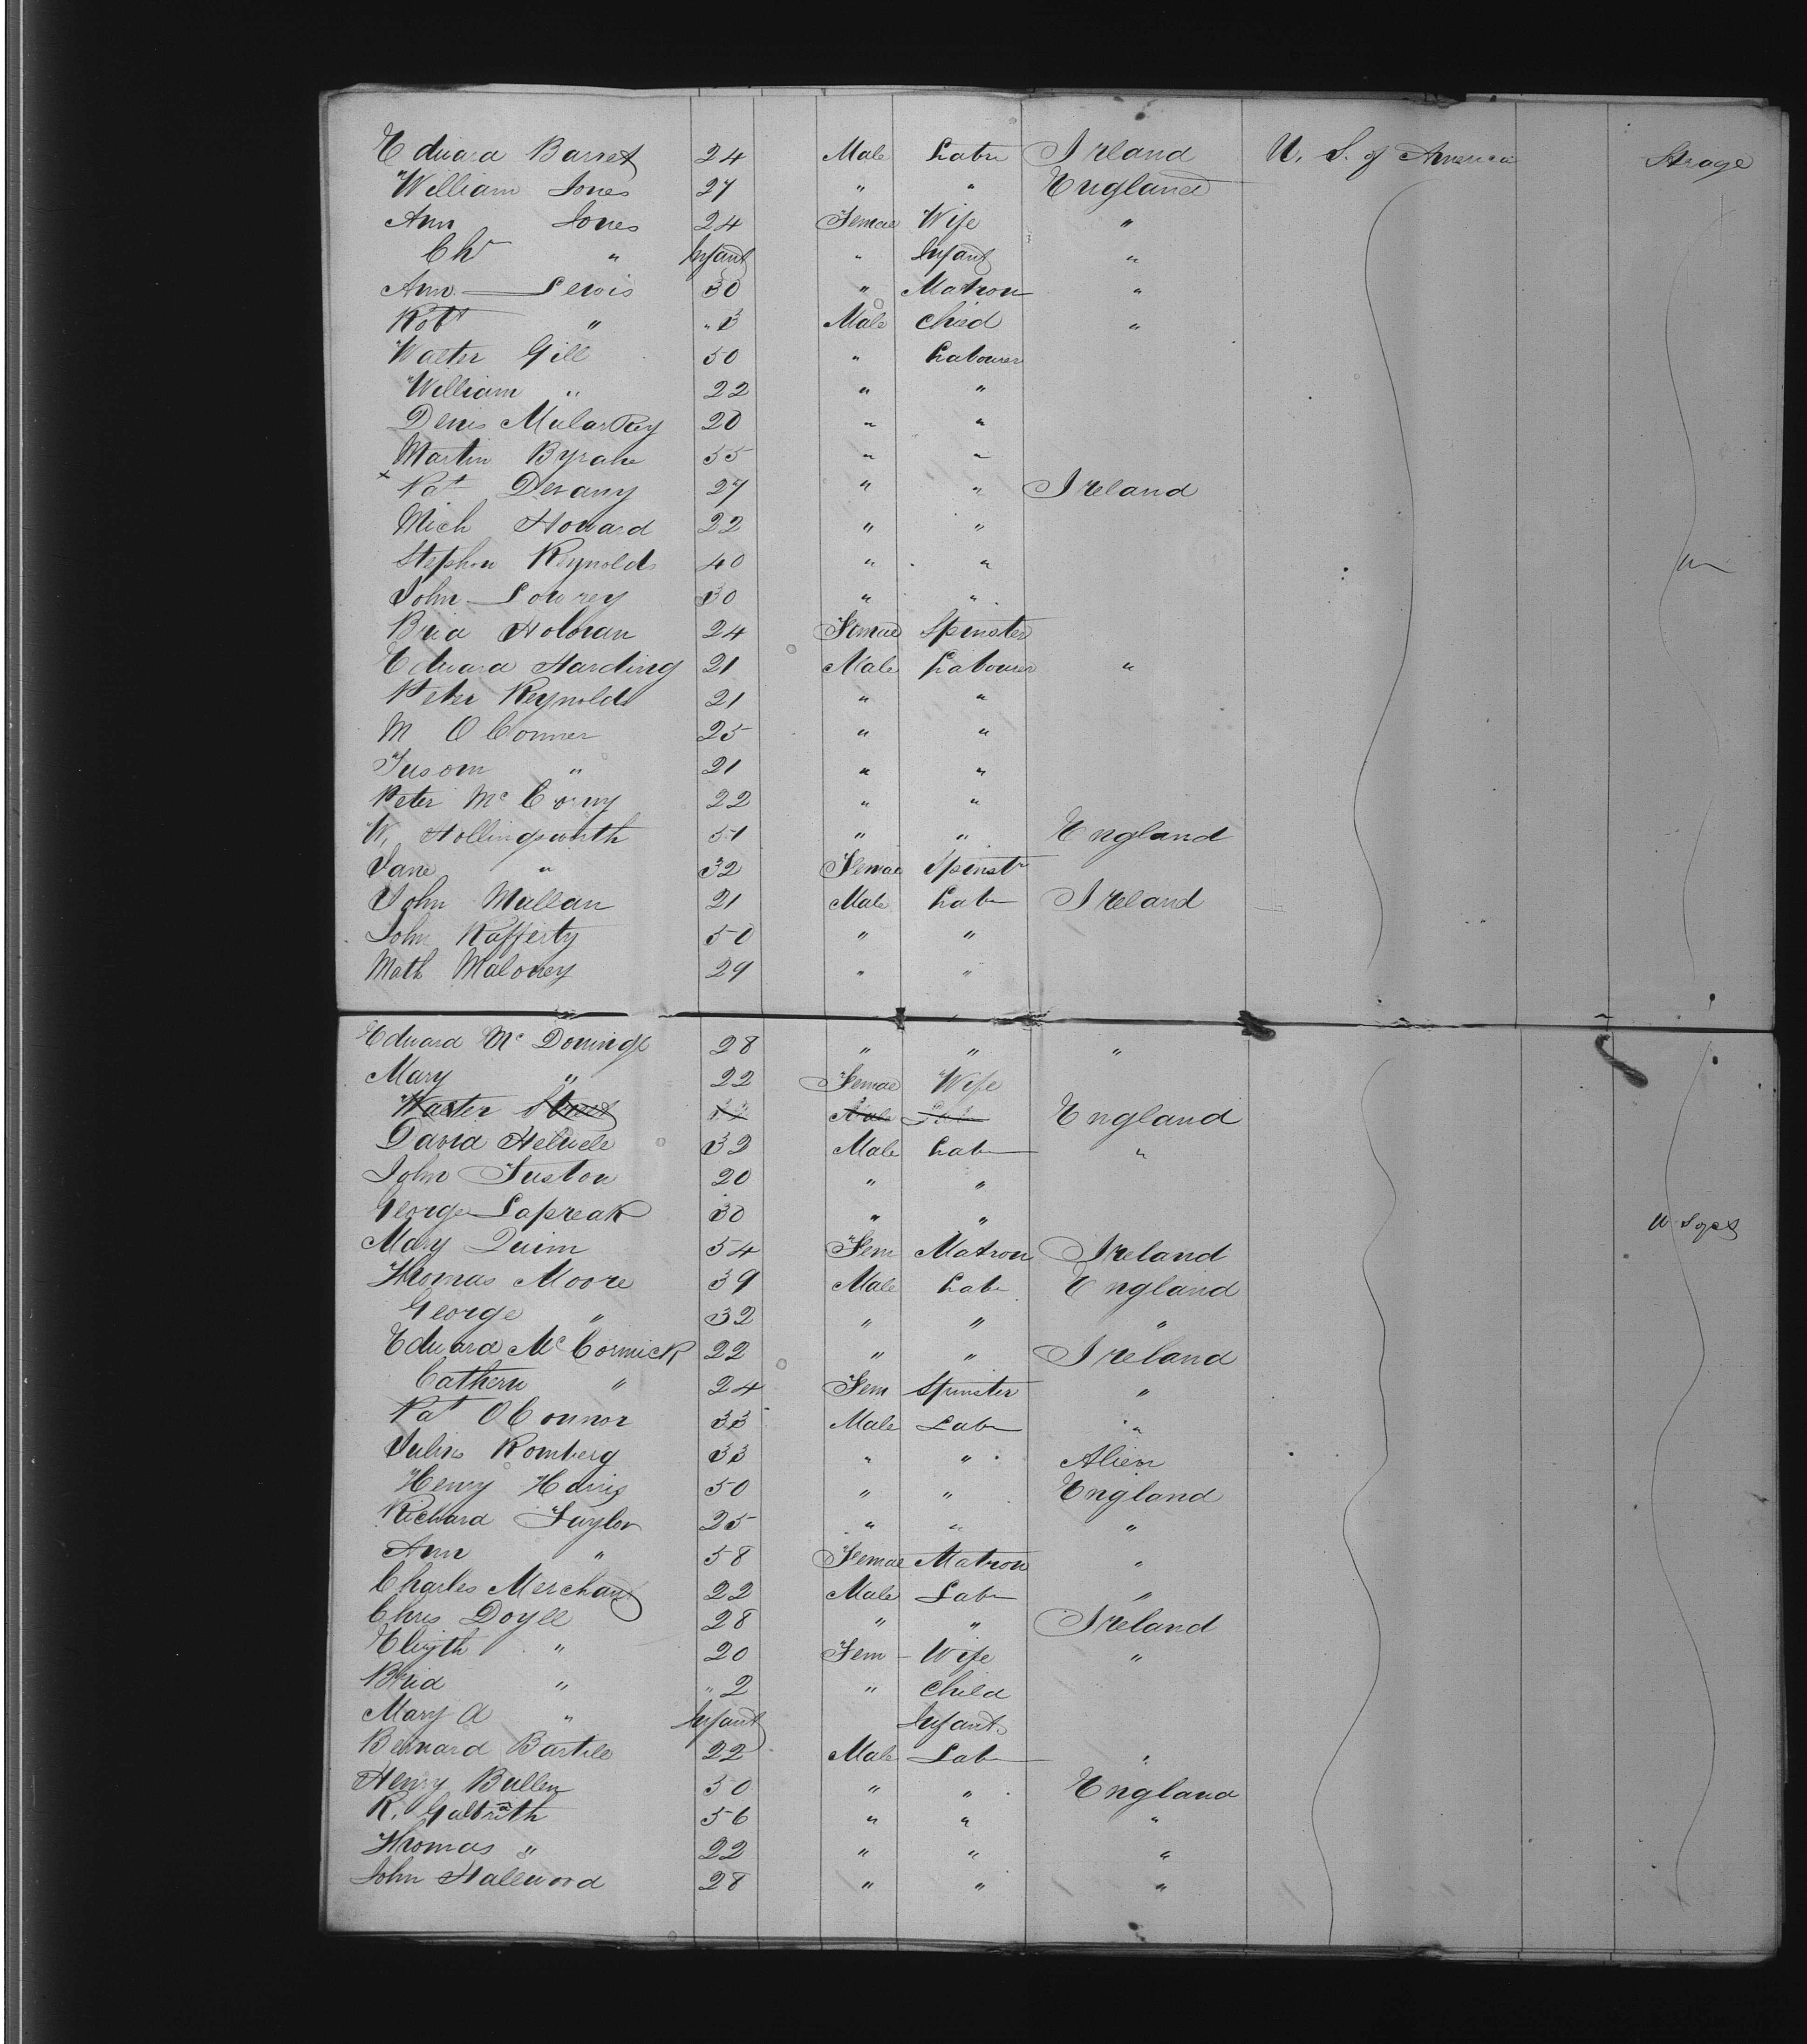 Edward Barret 24 Male Labr Ireland U. S. of America Strage
William Jones 27 " " England
Ann Jones 24 Femae Wife "
Chs " Infant " Infant "
Ann Lewis 30 " Matron "
Robt " " 3 Male Child "
Walter Gill 50 " Labourer
William " 22 " "
Denis Mularkey 20 " "
Martin Byrahe 55 " "
x Pat Devany 27 " " Ireland
Mich Howard 22 " "
Stephen Reynolds 40 " "
John Lowrey 30 " "
Brid Holoran 24 Femae Spinster
Edward Harding 21 Male Labourer "
Peter Reynolds 21 " "
M O Conner 25 " "
" 21 " "
Peter Mc Corny 22 " "
W. Hollingsworth 51 " " England
Jane " 32 Femae Spinstr
John Mullan 21 Male Labr Ireland
John Rafferty 50 " "
Math Maloney 29 " "
Edward Mc 28 " " "
Mary " 22 Femae Wife
Walter England
David 32 Male Labr "
John Fuston 20 " "
George Lapreak 30 " "
Mary Quinn 54 Fem Matron Ireland
Thomas Moore 39 Male Labr England
George " 32 " " "
Edward McCormick 22 " " Ireland
Cathern " 24 Fem Spinster "
Pat OConnor 33 Male Labr "
Julius Romberg 33 " " Alien
Henry Harris 50 " " England
Richard Taylor 25 " " "
Ann " 58 Femae Matron "
Charles Merchant 22 Male Labr "
Chris Doyle 28 " " Ireland
Elizth " 20 Fem Wife "
Brid " " 2 " Child
Mary A " Infant Infant
Bernard Bartile 22 Male Labr "
Henry Bullen 50 " " England
R. Galbraith 56 " " "
Thomas " 22 " " "
John Hallwood 28 " " "